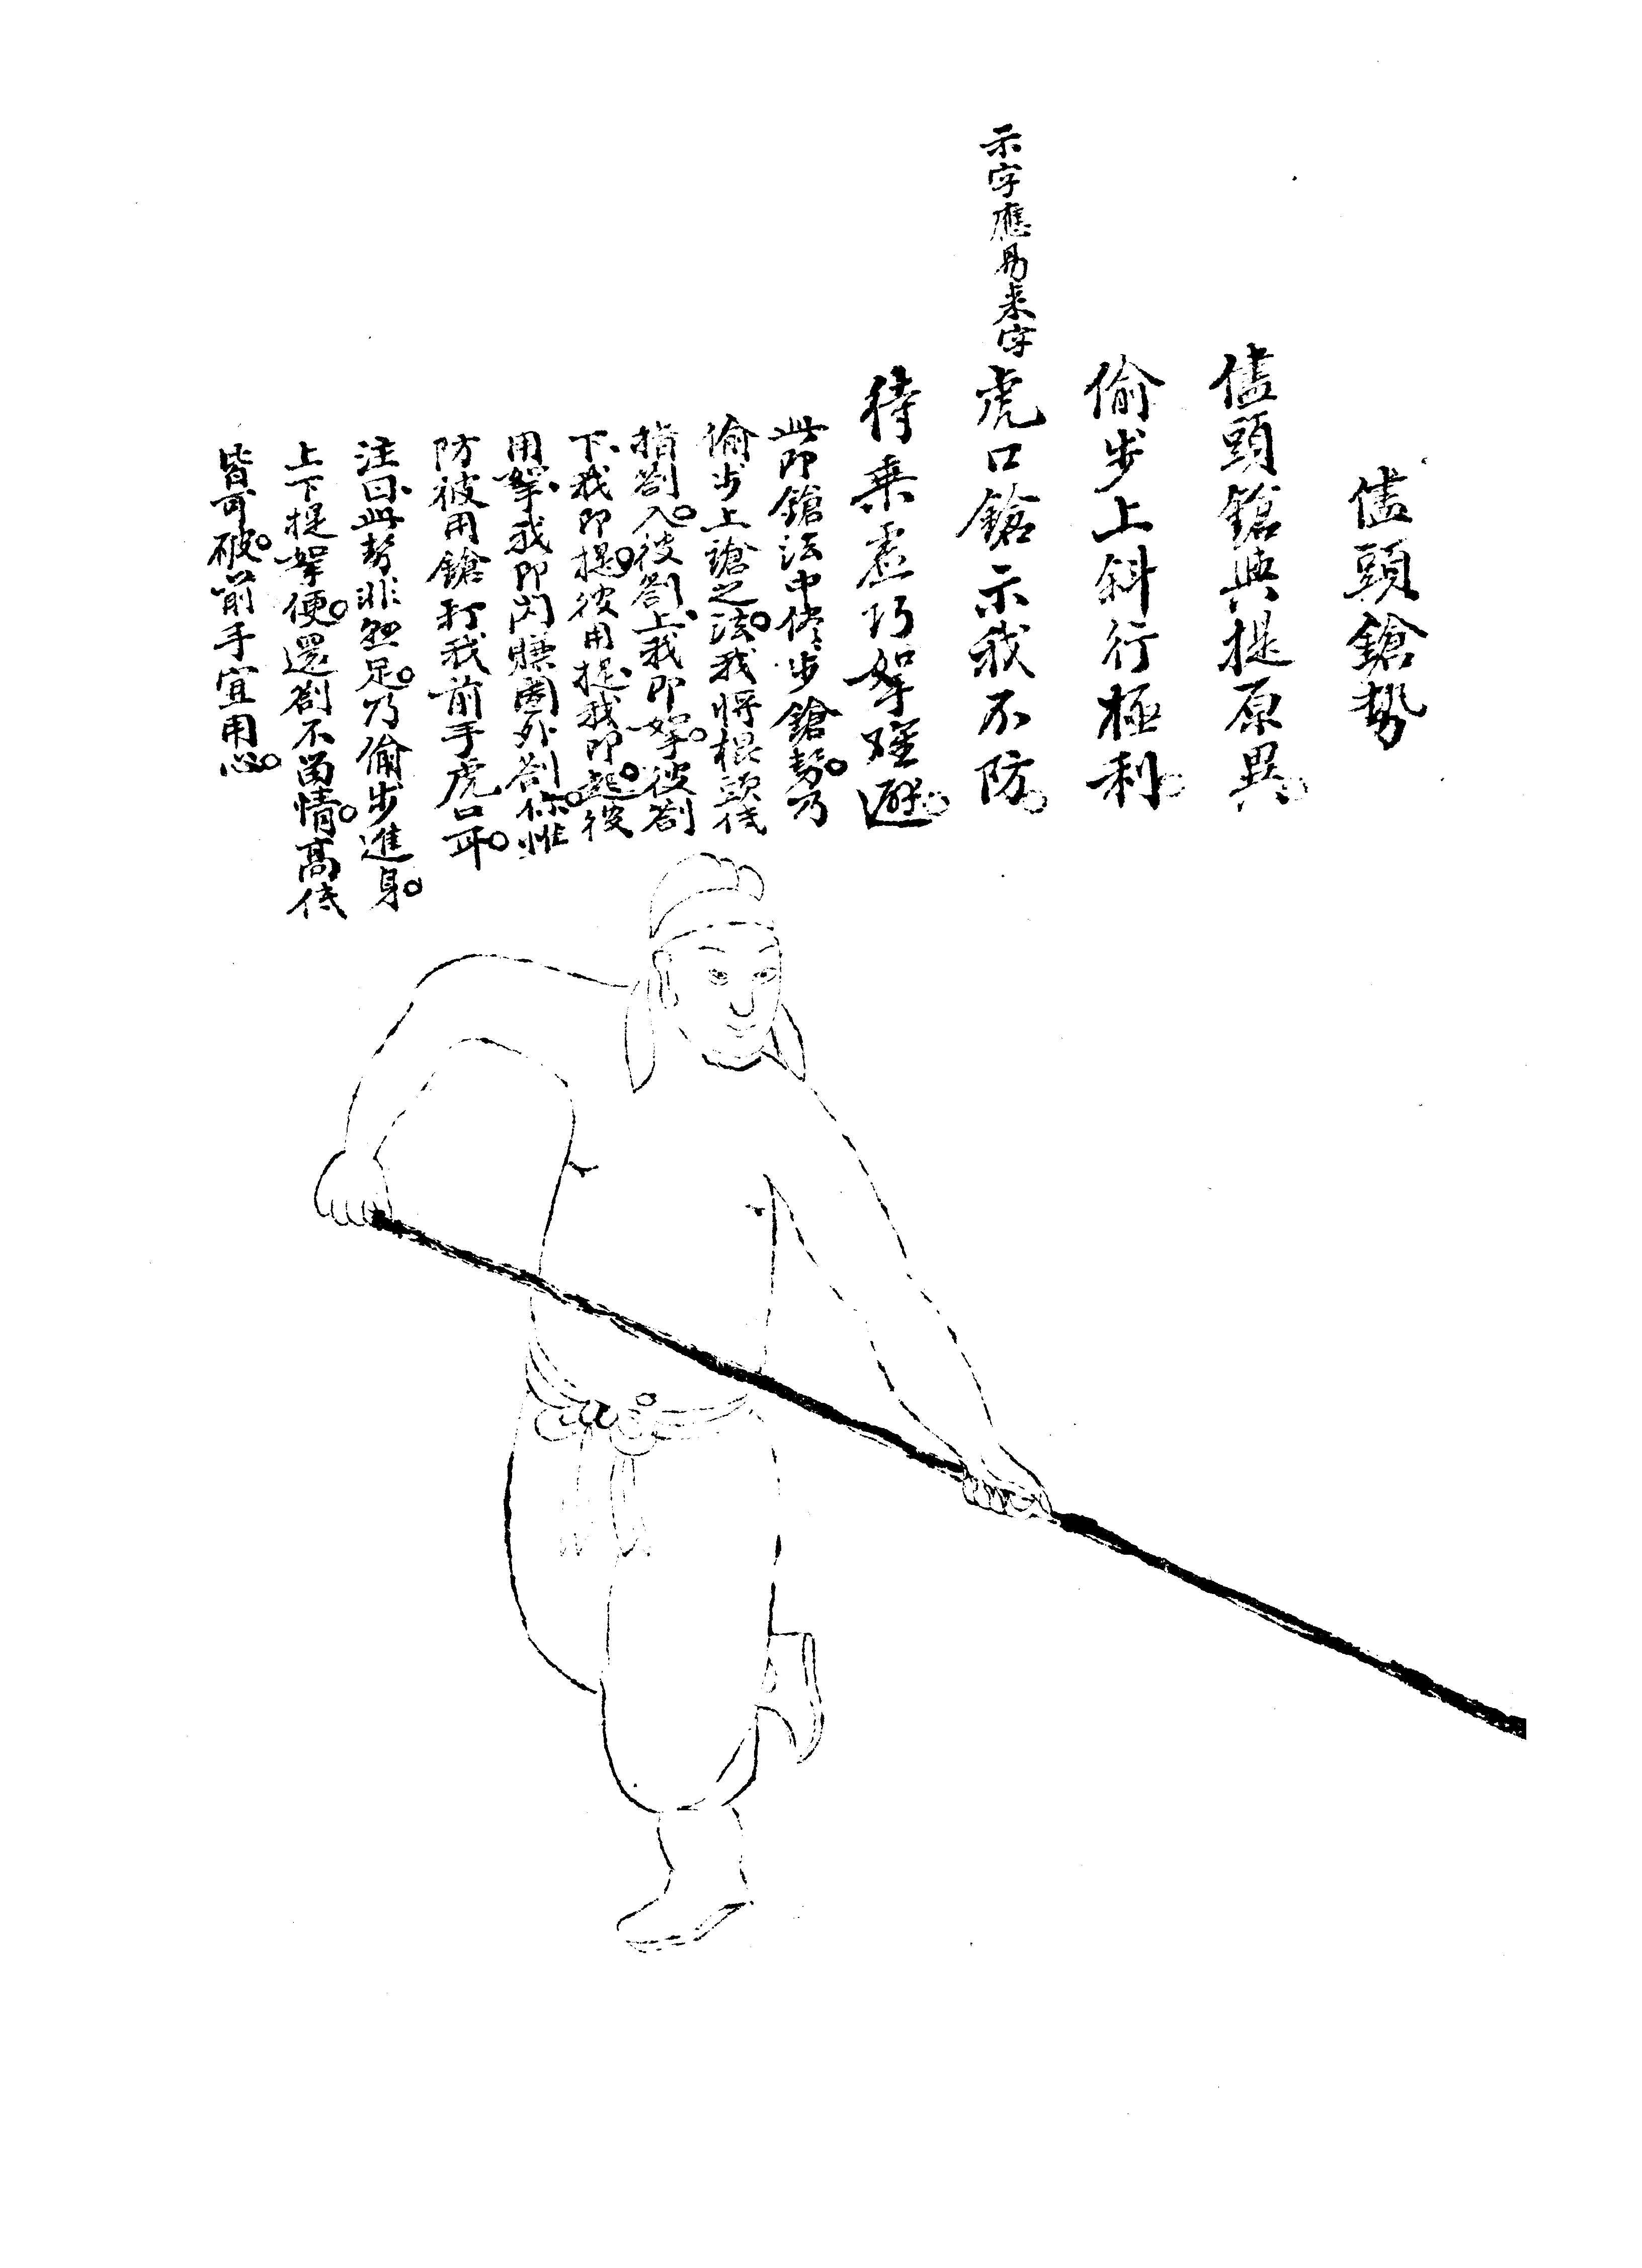 儘頭鎗勢
儘頭鎗與提原異。
偷步上斜行極利。
示字應易来字
虎口鎗示我不防。
待乗虛巧拏難避。
此即鎗法中偹步鎗勢。乃
偷步上鎗之法。我將棍頭低
指劄入。彼劄上、我即拏。彼劄
下、我即提。彼用提、我即起。彼
用拏、我即閃賺圈外劄你。惟
防彼用鎗打我前手虎口耳。
注曰、此勢非懸足。乃偷步進身。
上下提拏便。還劄不留情。高低
皆可破。前手宜用心。